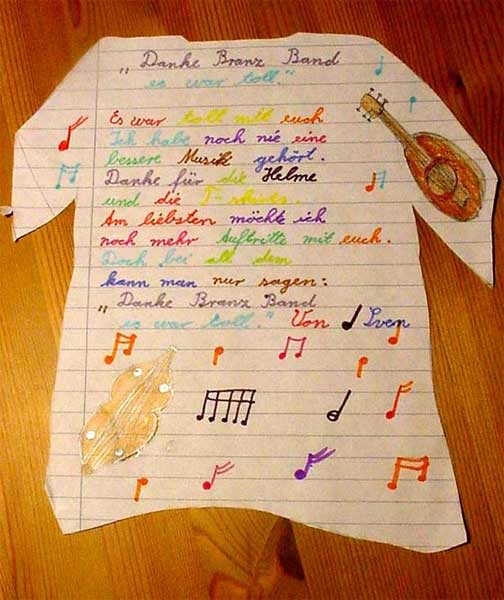 „Danke Branz Band
es war toll."
Es war toll mit euch
Ich habe noch nie eine
bessere Musik gehört.
Danke für die Helme
und die T-shirts.
Am liebsten möchte ich
noch mehr Auftritte mit euch.
Doch bei all dem
kann man nur sagen:
„Danke Branz Band
es war toll." Von Sven